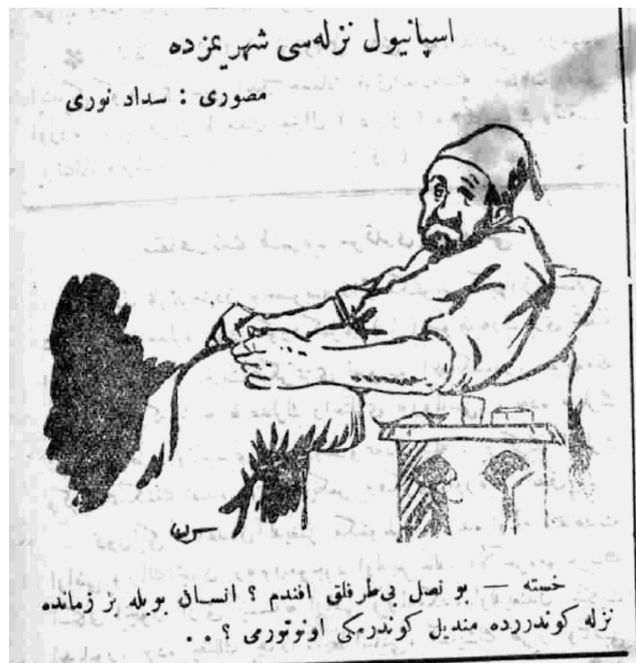 اسپانیول نزله‌سی شهریمزده
مصوری : سداد نوری
خسته — بو نصل بی‌طرفلق افندم ؟ انسان بویله بر زمانده
نزله کوندررده مندیل کوندرمکی اونوتورمی ؟ . .